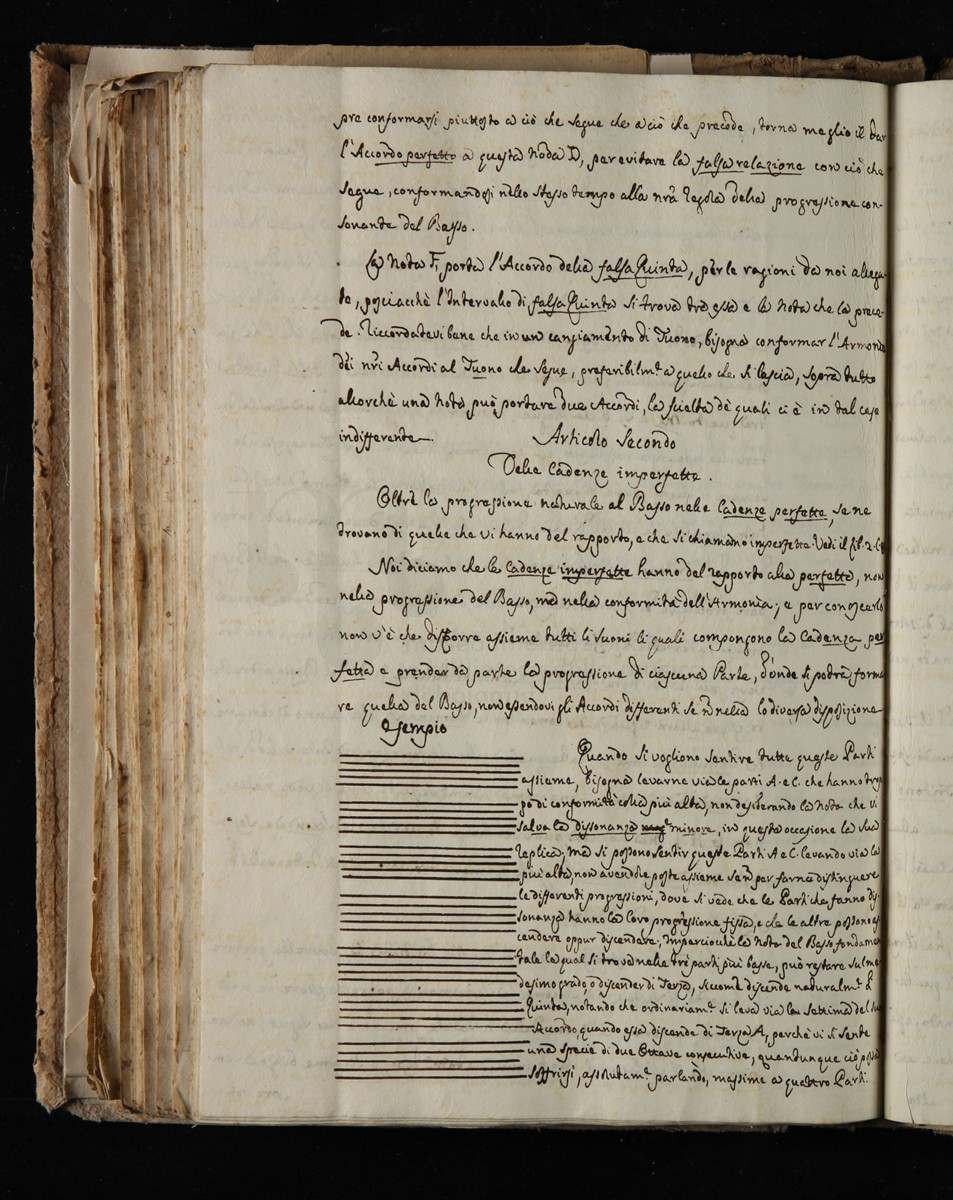 pre conformarsi piuttosto a ciò che segue che a ciò che precede, torna meglio il dar
l'Accordo perfetto a questa Nota D, per evitare la falsa relazione con ciò che
segue, conformandosi nello stesso tempo alla nrã Regola della progressione con-
sonante del Basso.
La Nota F, porta l'Accordo della falsa Quinta, per le ragioni da noi allega-
te, posciacchè l'Intervallo di falsa Quinta si trova tra essa e la Nota che la prece-
de. Riccordatevi bene che in un cangiamento di Tuono, bisogna conformar l'Armonia
dei nrĩ Accordi al Tuono che segue, preferibilmte a quello che si lascia, sopra tutto
allorchè una Nota può portare due Accordi, la scielta de quali ci è in tal caso
indifferente.
Articolo Secondo
Delle Cadenze imperfette.
Oltre la progressione naturale al Basso nelle Cadenze perfette, se ne
trovano di quelle che vi hanno del rapporto, e che si chiamano imperfette. Vedi il
Noi diciamo che le Cadenze imperfette hanno del rapporto alla perfetta, non
nella progressione del Basso, ma nella conformità dell'Armonia; e per conoscerlo
non v'è che disporre assieme tutti li suoni li quali compongono la Cadenza per
fetta e prender da parte la progressione di ciascuna Parte, d'onde si potrà forma
re quella del Basso, non essendovi gli Accordi differenti se ñ nella lo diversa disposizione
Esempio
Quando si vogliono sentire tutte queste Parti
assieme, bisogna levarne via le parti A. e C. che hanno trop
po di conformità colla più alta, non desiderando la Nota che vi
salva la dissonanza minore, in questa occasione la sua
Replica; ma si possono sentir queste Parti A e C. levando via la
più alta, non avendole poste assieme se ñ per farne distinguere
le differenti progressioni, dove si vede che le Parti che fanno dis-
sonanza hanno la loro progressione fissa, e che le altre possono as
cendere oppur discendere; Imperciochè la Nota del Basso fondamen
tale la qual si trova nelle tre parti più basse, può restare sul me
desimo grado, o discender di Terza, siccome discende naturalmte di
Quinta, notando che ordinariamte si leva via la Settima del suo
Accordo, quando essa discende di Terza A, perchè vi si sente
una specie di due Ottave consecutive, quantunque ciò possa
soffrirsi, assolutamte parlando, massime a quattro Parti.